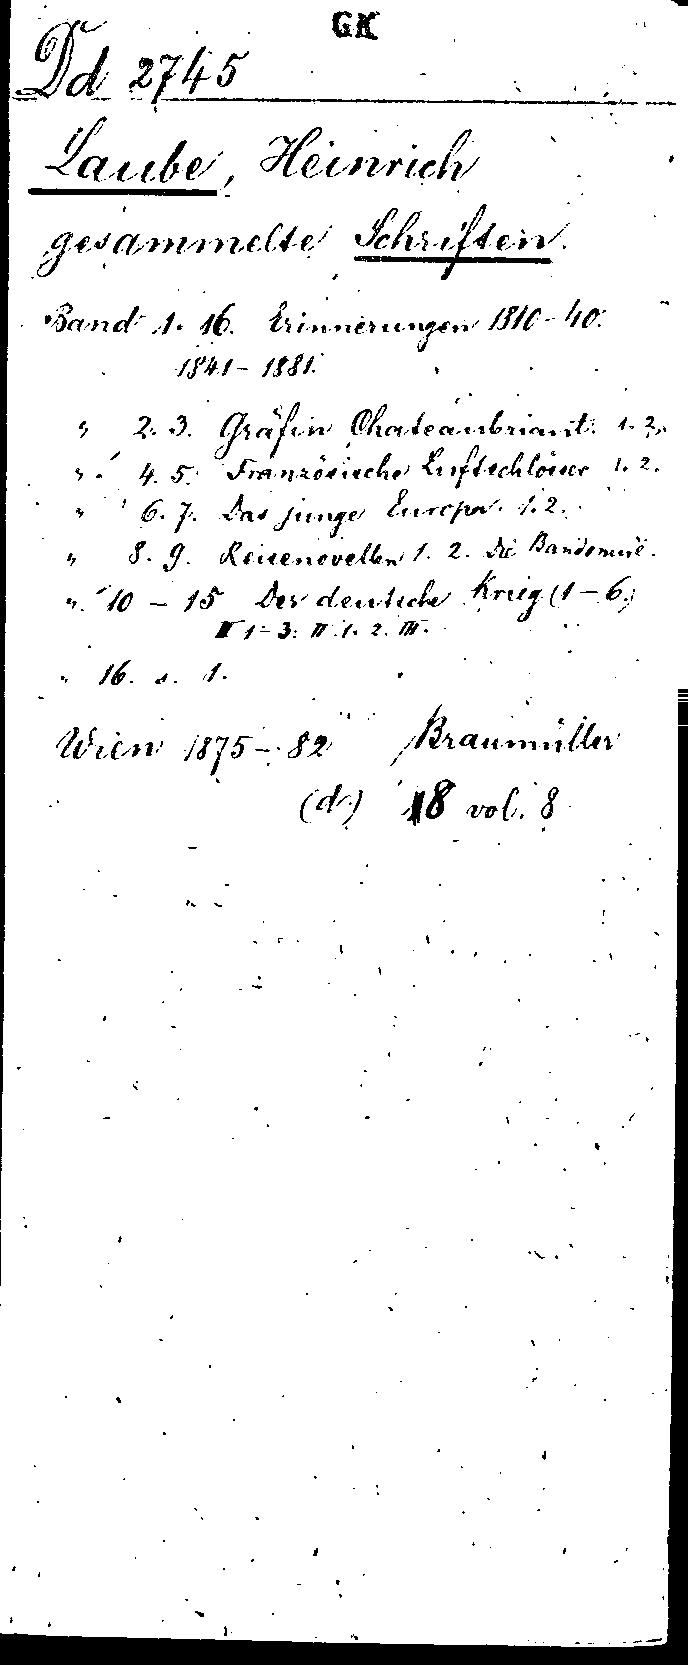 GK
Dd 2745
Laube, Heinrich
gesammelte Schriften.
Band 1. 16. Erinnerungen 1810-40.
1841-1881.
" 2. 3. Gräfin Chateaubriant. 1. 2.
" 4. 5. Französische Luftschlösser 1. 2.
" 6. 7. Das junge Europa. 1. 2.
" 8. 9. Reisenovellen 1. 2. Die Bandomire.
" 10 - 15 Der deutsche Krieg (1-6.)
1-3. II 1. 2. III.
" 16. s. 1.
Wien 1875-82 Braumüller
(d.) 18 vol. 8